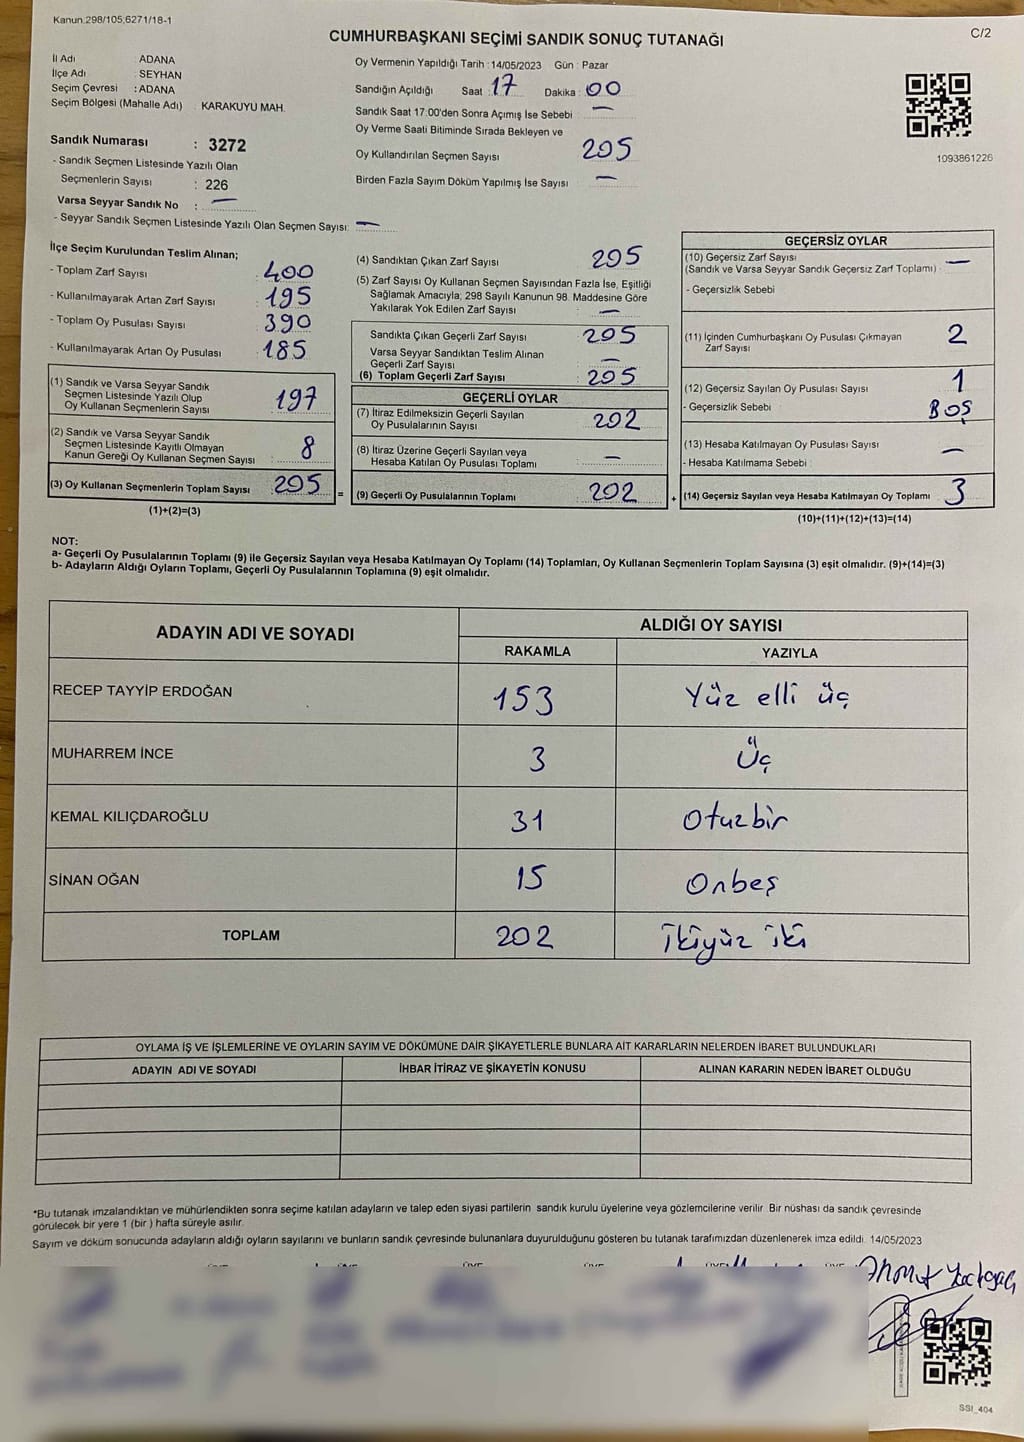 Kanun.298/105;6271/18-1
C/2
CUMHURBAŞKANI SEÇİMİ SANDIK SONUÇ TUTANAĞI
İl Adı ADANA
İlçe Adı : SEYHAN
Seçim Çevresi : ADANA
Seçim Bölgesi (Mahalle Adı) : KARAKUYU MAH.
Oy Vermenin Yapıldığı Tarih : 14/05/2023 Gün : Pazar
Sandığın Açıldığı Saat : 17 Dakika : 00
Sandık Saat 17:00'den Sonra Açımış İse Sebebi —
Oy Verme Saati Bitiminde Sırada Bekleyen ve
Oy Kullandırılan Seçmen Sayısı 205
Birden Fazla Sayım Döküm Yapılmış İse Sayısı —
1093861226
Sandık Numarası : 3272
- Sandık Seçmen Listesinde Yazılı Olan
Seçmenlerin Sayısı : 226
Varsa Seyyar Sandık No : —
- Seyyar Sandık Seçmen Listesinde Yazılı Olan Seçmen Sayısı: —
İlçe Seçim Kurulundan Teslim Alınan;
- Toplam Zarf Sayısı : 400
- Kullanılmayarak Artan Zarf Sayısı : 195
- Toplam Oy Pusulası Sayısı : 390
- Kullanılmayarak Artan Oy Pusulası : 185
(1) Sandık ve Varsa Seyyar Sandık
Seçmen Listesinde Yazılı Olup
Oy Kullanan Seçmenlerin Sayısı : 197
(2) Sandık ve Varsa Seyyar Sandık
Seçmen Listesinde Kayıtlı Olmayan
Kanun Gereği Oy Kullanan Seçmen Sayısı : 8
(3) Oy Kullanan Seçmenlerin Toplam Sayısı : 205
(1)+(2)=(3)
=
(4) Sandıktan Çıkan Zarf Sayısı 205
(5) Zarf Sayısı Oy Kullanan Seçmen Sayısından Fazla İse, Eşitliği
Sağlamak Amacıyla; 298 Sayılı Kanunun 98. Maddesine Göre
Yakılarak Yok Edilen Zarf Sayısı : —
Sandıkta Çıkan Geçerli Zarf Sayısı : 205
Varsa Seyyar Sandıktan Teslim Alınan
Geçerli Zarf Sayısı —
(6) Toplam Geçerli Zarf Sayısı : 205
GEÇERLİ OYLAR
(7) İtiraz Edilmeksizin Geçerli Sayılan
Oy Pusulalarının Sayısı : 202
(8) İtiraz Üzerine Geçerli Sayılan veya
Hesaba Katılan Oy Pusulası Toplamı : —
(9) Geçerli Oy Pusulalarının Toplamı : 202
+
GEÇERSİZ OYLAR
(10) Geçersiz Zarf Sayısı
(Sandık ve Varsa Seyyar Sandık Geçersiz Zarf Toplamı) : —
- Geçersizlik Sebebi
(11) İçinden Cumhurbaşkanı Oy Pusulası Çıkmayan
Zarf Sayısı 2
(12) Geçersiz Sayılan Oy Pusulası Sayısı 1
- Geçersizlik Sebebi : BOŞ
(13) Hesaba Katılmayan Oy Pusulası Sayısı —
- Hesaba Katılmama Sebebi :
(14) Geçersiz Sayılan veya Hesaba Katılmayan Oy Toplamı : 3
(10)+(11)+(12)+(13)=(14)
NOT:
a- Geçerli Oy Pusulalarının Toplamı (9) ile Geçersiz Sayılan veya Hesaba Katılmayan Oy Toplamı (14) Toplamları, Oy Kullanan Seçmenlerin Toplam Sayısına (3) eşit olmalıdır. (9)+(14)=(3)
b- Adayların Aldığı Oyların Toplamı, Geçerli Oy Pusulalarının Toplamına (9) eşit olmalıdır.
ADAYIN ADI VE SOYADI
ALDIĞI OY SAYISI
RAKAMLA YAZIYLA
RECEP TAYYİP ERDOĞAN 153 Yüz elli üç
MUHARREM İNCE 3 Üç
KEMAL KILIÇDAROĞLU 31 Otuzbir
SİNAN OĞAN 15 Onbeş
TOPLAM 202 İkiyüz iki
OYLAMA İŞ VE İŞLEMLERİNE VE OYLARIN SAYIM VE DÖKÜMÜNE DAİR ŞİKAYETLERLE BUNLARA AİT KARARLARIN NELERDEN İBARET BULUNDUKLARI
ADAYIN ADI VE SOYADI İHBAR İTİRAZ VE ŞİKAYETİN KONUSU ALINAN KARARIN NEDEN İBARET OLDUĞU
*Bu tutanak imzalandıktan ve mühürlendikten sonra seçime katılan adayların ve talep eden siyasi partilerin sandık kurulu üyelerine veya gözlemcilerine verilir. Bir nüshası da sandık çevresinde
görülecek bir yere 1 (bir ) hafta süreyle asılır.
Sayım ve döküm sonucunda adayların aldığı oyların sayılarını ve bunların sandık çevresinde bulunanlara duyurulduğunu gösteren bu tutanak tarafımızdan düzenlenerek imza edildi. 14/05/2023
SSI_404